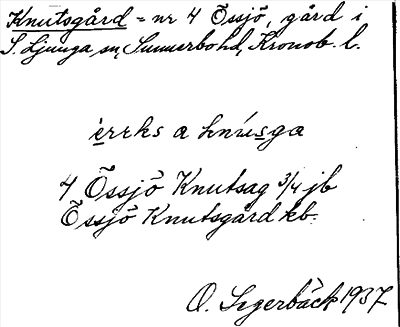 Knutsgård = nr 4 Össjö, gård i
S. Ljunga sn, Sunnerbo hd, Kronob. l.
4 Össjö Knutsag 3/4 jb
Össjö Knutsgård kb.
O. Segerbäck 1937